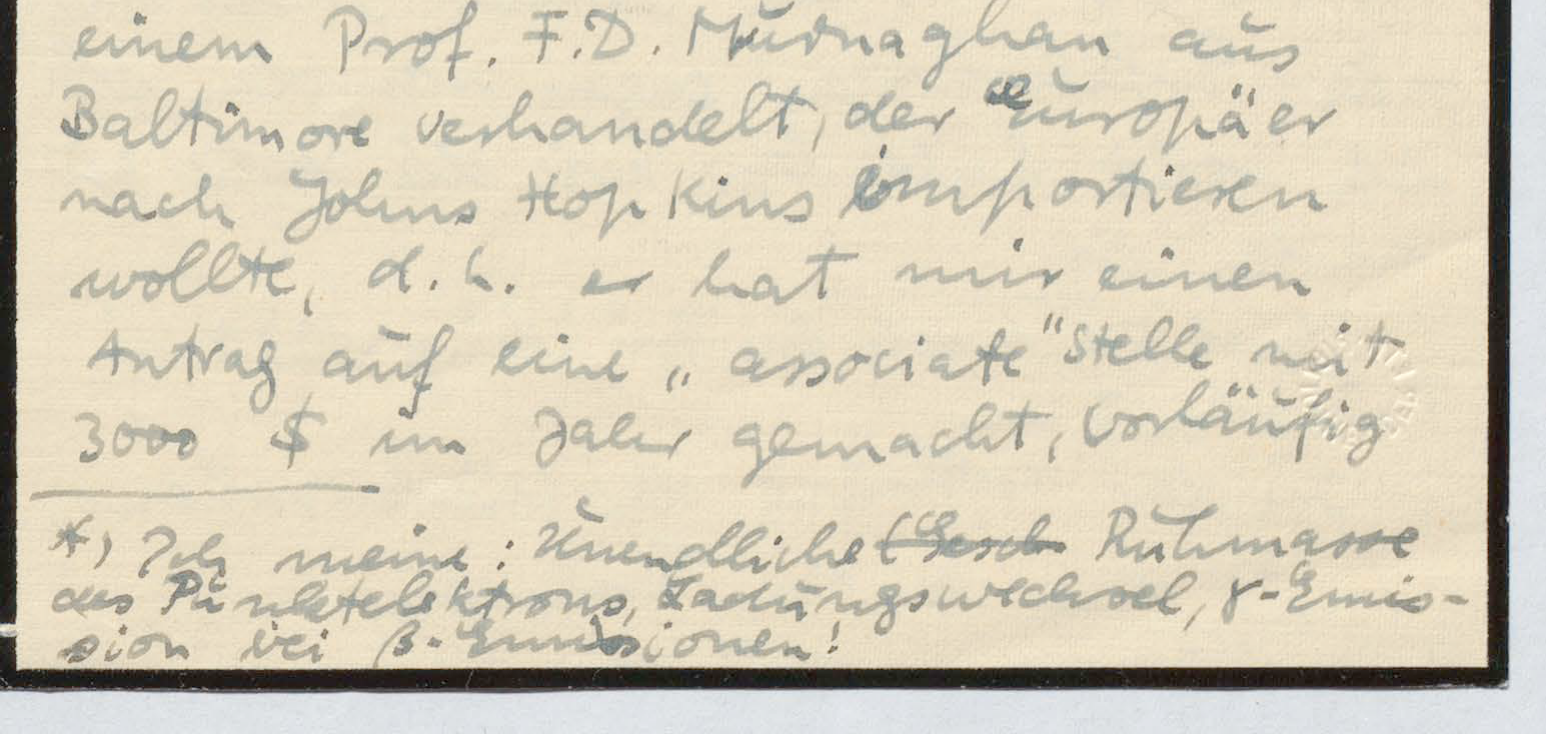 einem Prof. F.D. Murnaghan aus
Baltimore verhandelt, der Europäer
nach Johns Hopkins importieren
wollte, d.h. er hat mir einen
Antrag auf eine „associate" Stelle mit
3000 $ im Jahr gemacht, vorläufig
*) Ich meine: Unendliche (Gesch Ruhmasse
des Punktelektrons, Ladungswechsel, γ-Emis-
sion bei β-Emissionen!